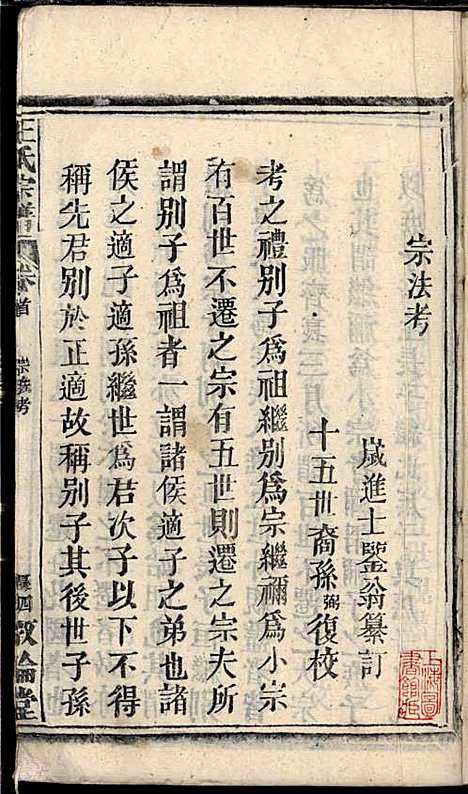 宗法考
歲進士鑒翁纂訂
十五世裔孫弼復校
考之禮別子爲祖繼別爲宗繼禰爲小宗
有百世不遷之宗有五世則遷之宗夫所
謂別子爲祖者一謂諸侯適子之弟也諸
侯之適子適孫繼世爲君次子以下不得
稱先君別於正適故稱別子其後世子孫
王氏宗譜
卷首
宗法考
四
敦倫堂